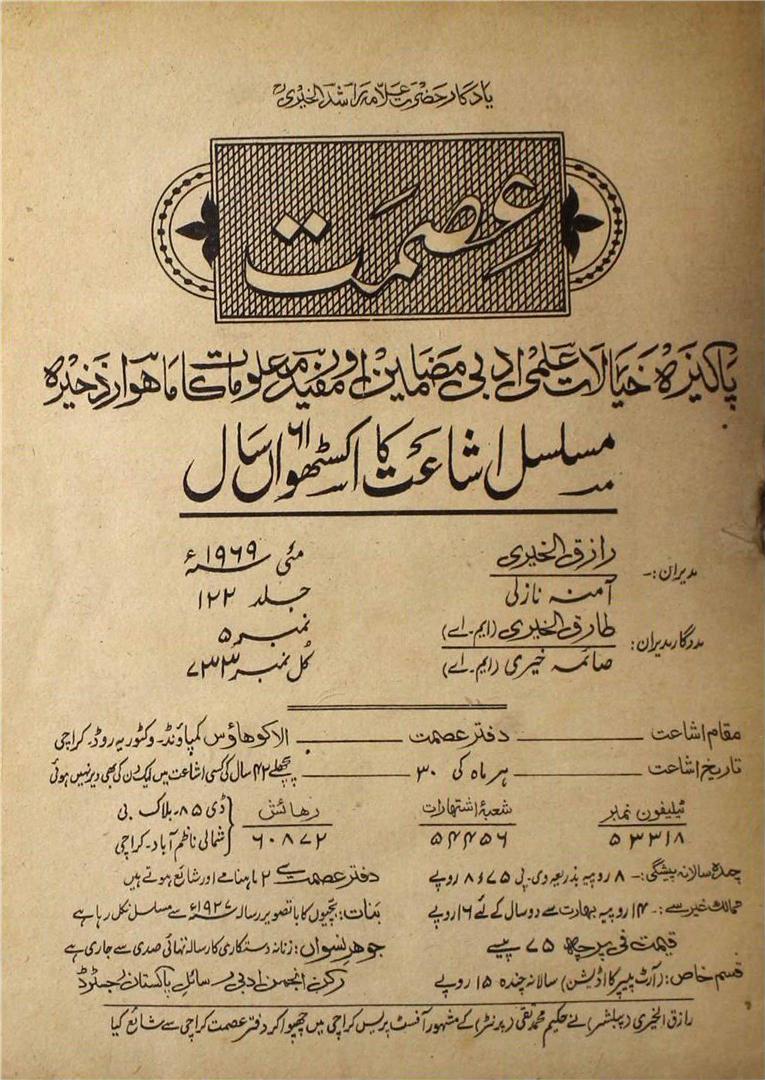 یادگار حضرت علامہ راشد الخیریؒ
عصمت
پاکیزہ خیالات علمی ادبی مضامین اور مفید معلومات کا ماہوار ذخیرہ
مسلسل اشاعت کا اکسٹھواں ۶۱ سال
مدیران:- رازق الخیری
آمنہ نازلی
مددگار مدیران: طارق الخیری (ایم۔اے)
صائمہ خیری (ایم۔اے)
مئی ۱۹۶۹ء
جلد ۱۲۲
نمبر ۵
کل نمبر ۷۳۳
مقام اشاعت دفتر عصمت الاکو ہاؤس کمپاؤنڈ۔ وکٹوریہ روڈ۔ کراچی
تاریخ اشاعت ہر ماہ کی ۳۰ پچھلے ۴۲ سال کی کسی اشاعت میں ایک دن کی بھی دیر نہیں ہوئی
ٹیلیفون نمبر ۵۳۳۱۸
شعبۂ اشتہارات ۵۴۴۵۶
رہائش ۶۰۸۷۲ ڈی ۸۵۔ بلاک بی
شمالی ناظم آباد۔ کراچی
چندہ سالانہ پیشگی:- ۸ روپیہ بذریعہ وی۔ پی ۸٫۷۵ روپے
ممالک غیر سے:- ۱۴ روپیہ بھارت سے دو سال کے لئے ۱۶ روپے
قیمت فی پرچہ ۷۵ پیسے
قسم خاص: (آرٹ پیپر کا اڈیشن) سالانہ چندہ ۱۵ روپے
دفتر عصمت سے ۲ ماہنامے اور شائع ہوتے ہیں
بنات: بچیوں کا باتصویر رسالہ ۱۹۲۷ء سے مسلسل نکل رہا ہے
جوہر نسواں: زنانہ دستکاری کا رسالہ تہائی صدی سے جاری ہے
رکن انجمن ادبی رسائل پاکستان رجسٹرڈ
رازق الخیری (پبلشر) نے حکیم محمد تقی (پرنٹر) کے مشہور آفسٹ پریس کراچی میں چھپوا کر دفتر عصمت کراچی سے شائع کیا